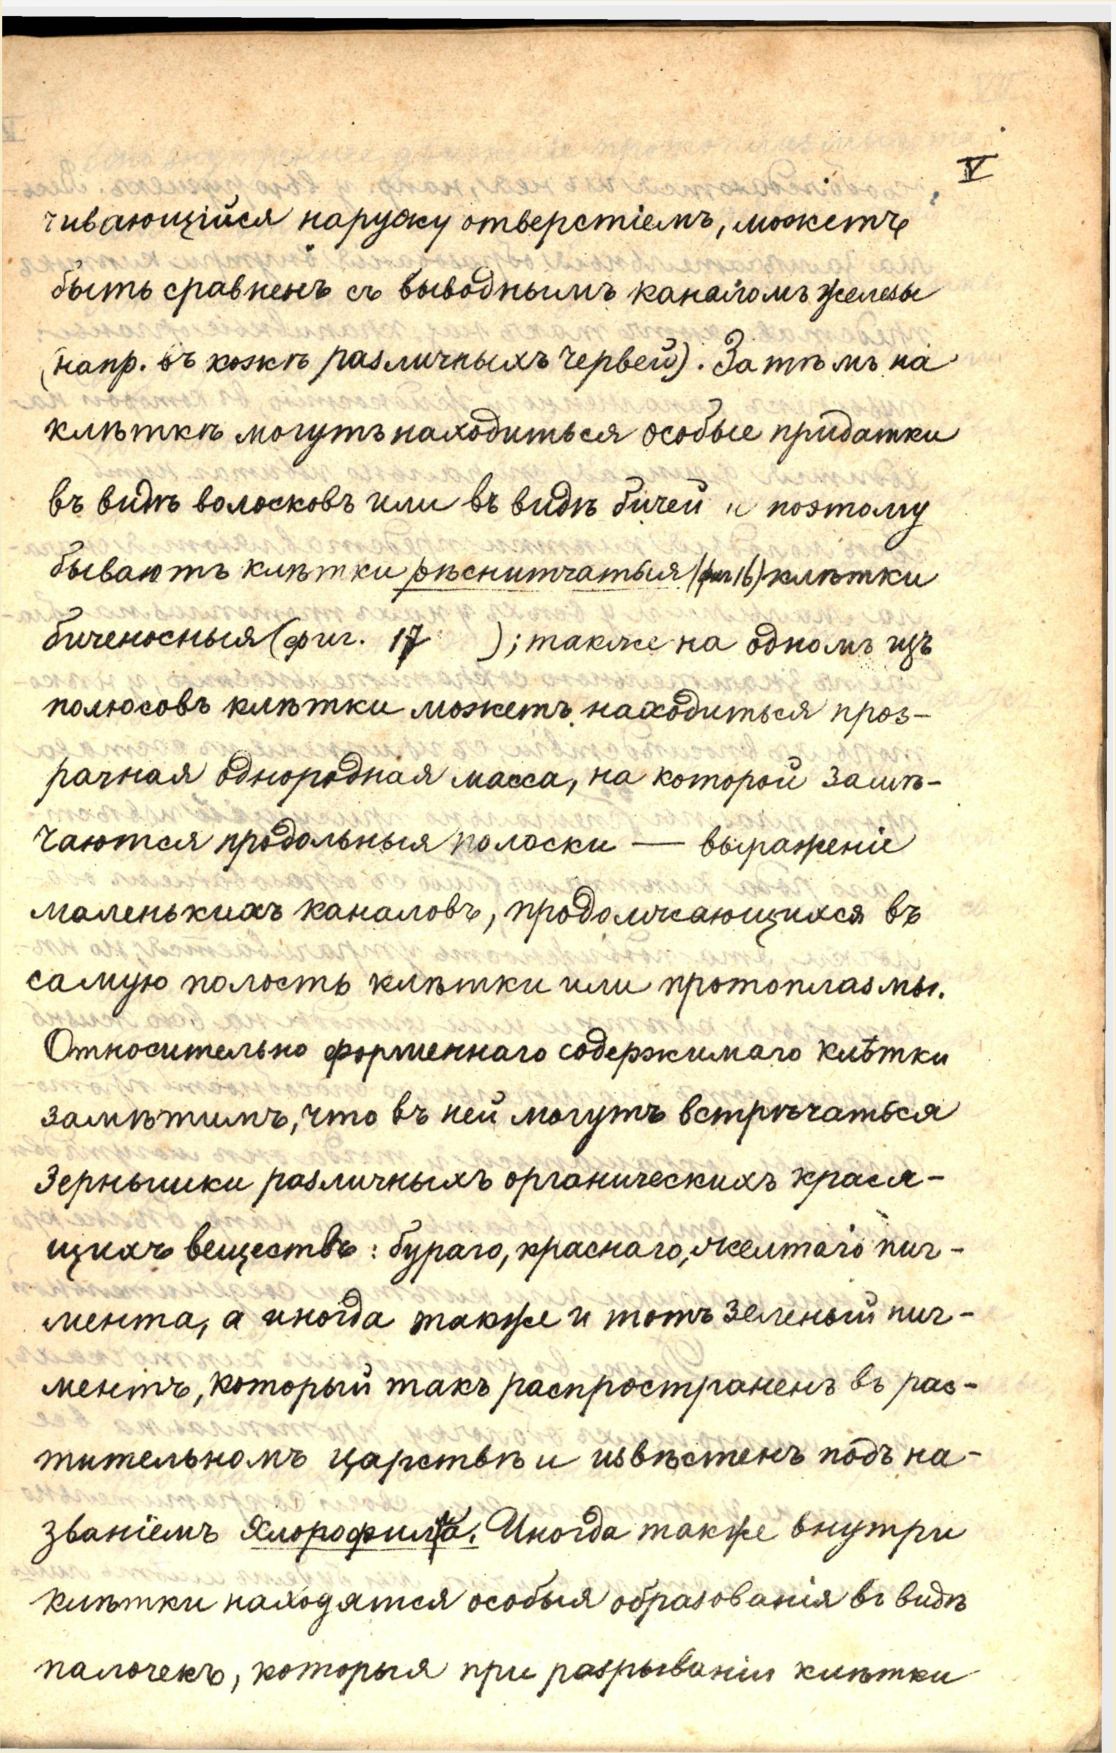 V
чивающійся наружу отверстіемъ, можетъ
быть сравненъ съ выводнымъ каналомъ железы
(напр. въ кожѣ различныхъ червей). Затѣмъ на
клѣткѣ могутъ находиться особые придатки
въ видѣ волосковъ или въ видѣ бичей и поэтому
бываютъ клѣтки рѣснитчатыя (фиг 16) клѣтки
биченосныя (фиг. 17 ); также на одномъ изъ
полюсовъ клѣтки можетъ находиться проз-
рачная однородная масса, на которой замѣ-
чаются продольныя полоски — выраженіе
маленькихъ каналовъ, продолжающихся въ
самую полость клѣтки или протоплазмы.
Относительно форменнаго содержимаго клѣтки
замѣтимъ, что въ ней могутъ встрѣчаться
зернышки различныхъ органическихъ крася-
щихъ веществъ: бураго, краснаго, желтаго пиг-
мента, а иногда также и тотъ зеленый пиг-
ментъ, который такъ распространенъ въ рас-
тительномъ царствѣ и извѣстенъ подъ на-
званіемъ хлорофилла. Иногда также внутри
клѣтки находятся особыя образованія въ видѣ
палочекъ, которыя при разрываніи клѣтки